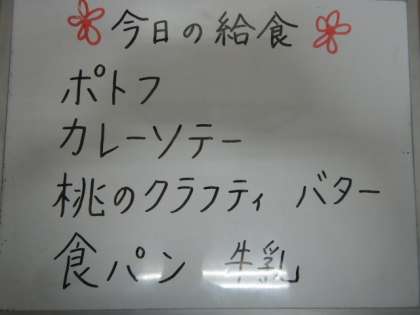 今日の給食
ポトフ
カレーソテー
桃のクラフティ バター
食パン 牛乳